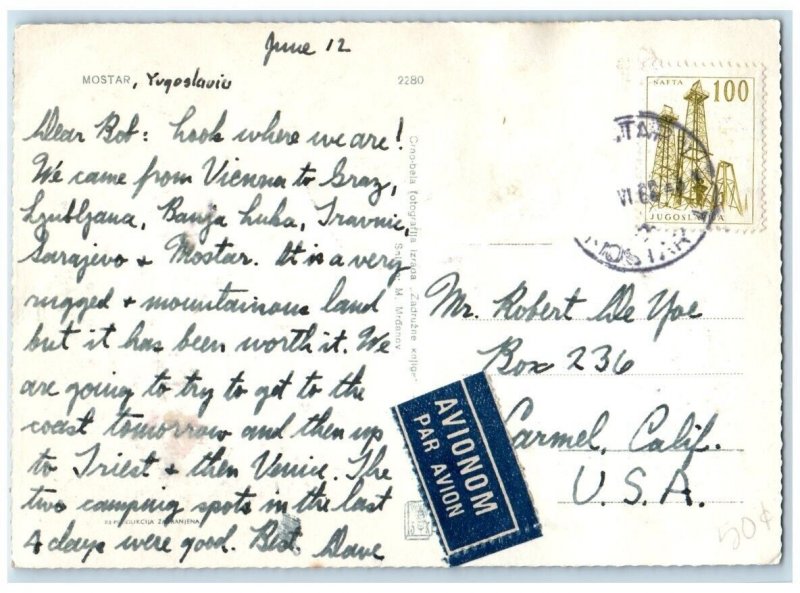 June 12
MOSTAR, Yugoslavia
2280
Dear Bob: Look where we are!
We came from Vienna to Graz,
Ljubljana, Banja Luka, Travnic,
Sarajevo + Mostar. It is a very
rugged + mountainous land
but it has been worth it. We
are going to try to get to the
coast tomorrow and then up
to Triest + then Venice. The
two camping spots in the last
4 days were good. Best. Dave
REPRODUKCIJA ZABRANJENA
Crno-bela fotografija Izrada „Zadružne knjige"
M. Mrđenov
NAFTA
100
JUGOSLAVIA
MOSTAR
VI 63
AVIONOM
PAR AVION
Mr. Robert De Yoe
Box 236
Carmel, Calif.
U.S.A.
50¢